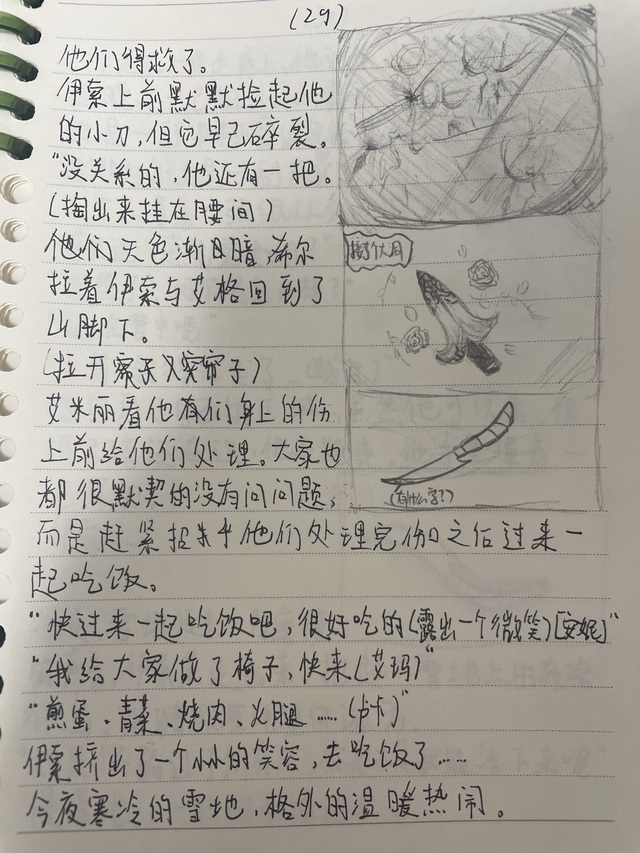 (29)
他们得救了。
伊索上前默默捡起他
的小刀,但它早已碎裂。
"没关系的,他还有一把。
(掏出来挂在腰间)
他们天色渐日暗 希尔
拉着伊索与艾格回到了
山脚下。
(拉开帘子)
艾米丽看他们身上的伤
上前给他们处理。大家也
都很默契的没有问问题,
而是赶紧招呼他们处理完伤口之后过来一
起吃饭。
"快过来一起吃饭吧,很好吃的(露出一个微笑)[安妮]"
"我给大家做了椅子,快来(艾玛)"
"煎蛋、青菜、烧肉、火腿……(卡)"
伊索挤出了一个小小的笑容,去吃饭了……
今夜寒冷的雪地,格外的温暖热闹。